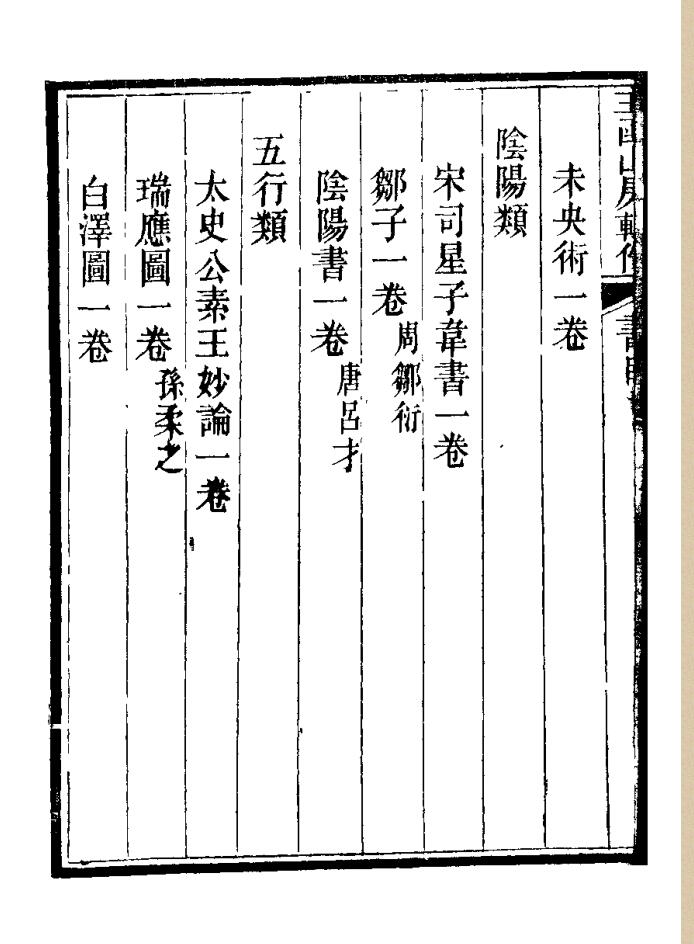 玉函山房輯佚 書目
未央術一卷
陰陽類
宋司星子韋書一卷
鄒子一卷 周鄒衍
陰陽書一卷 唐呂才
五行類
太史公素王妙論一卷
瑞應圖一卷 孫柔之
白澤圖一卷